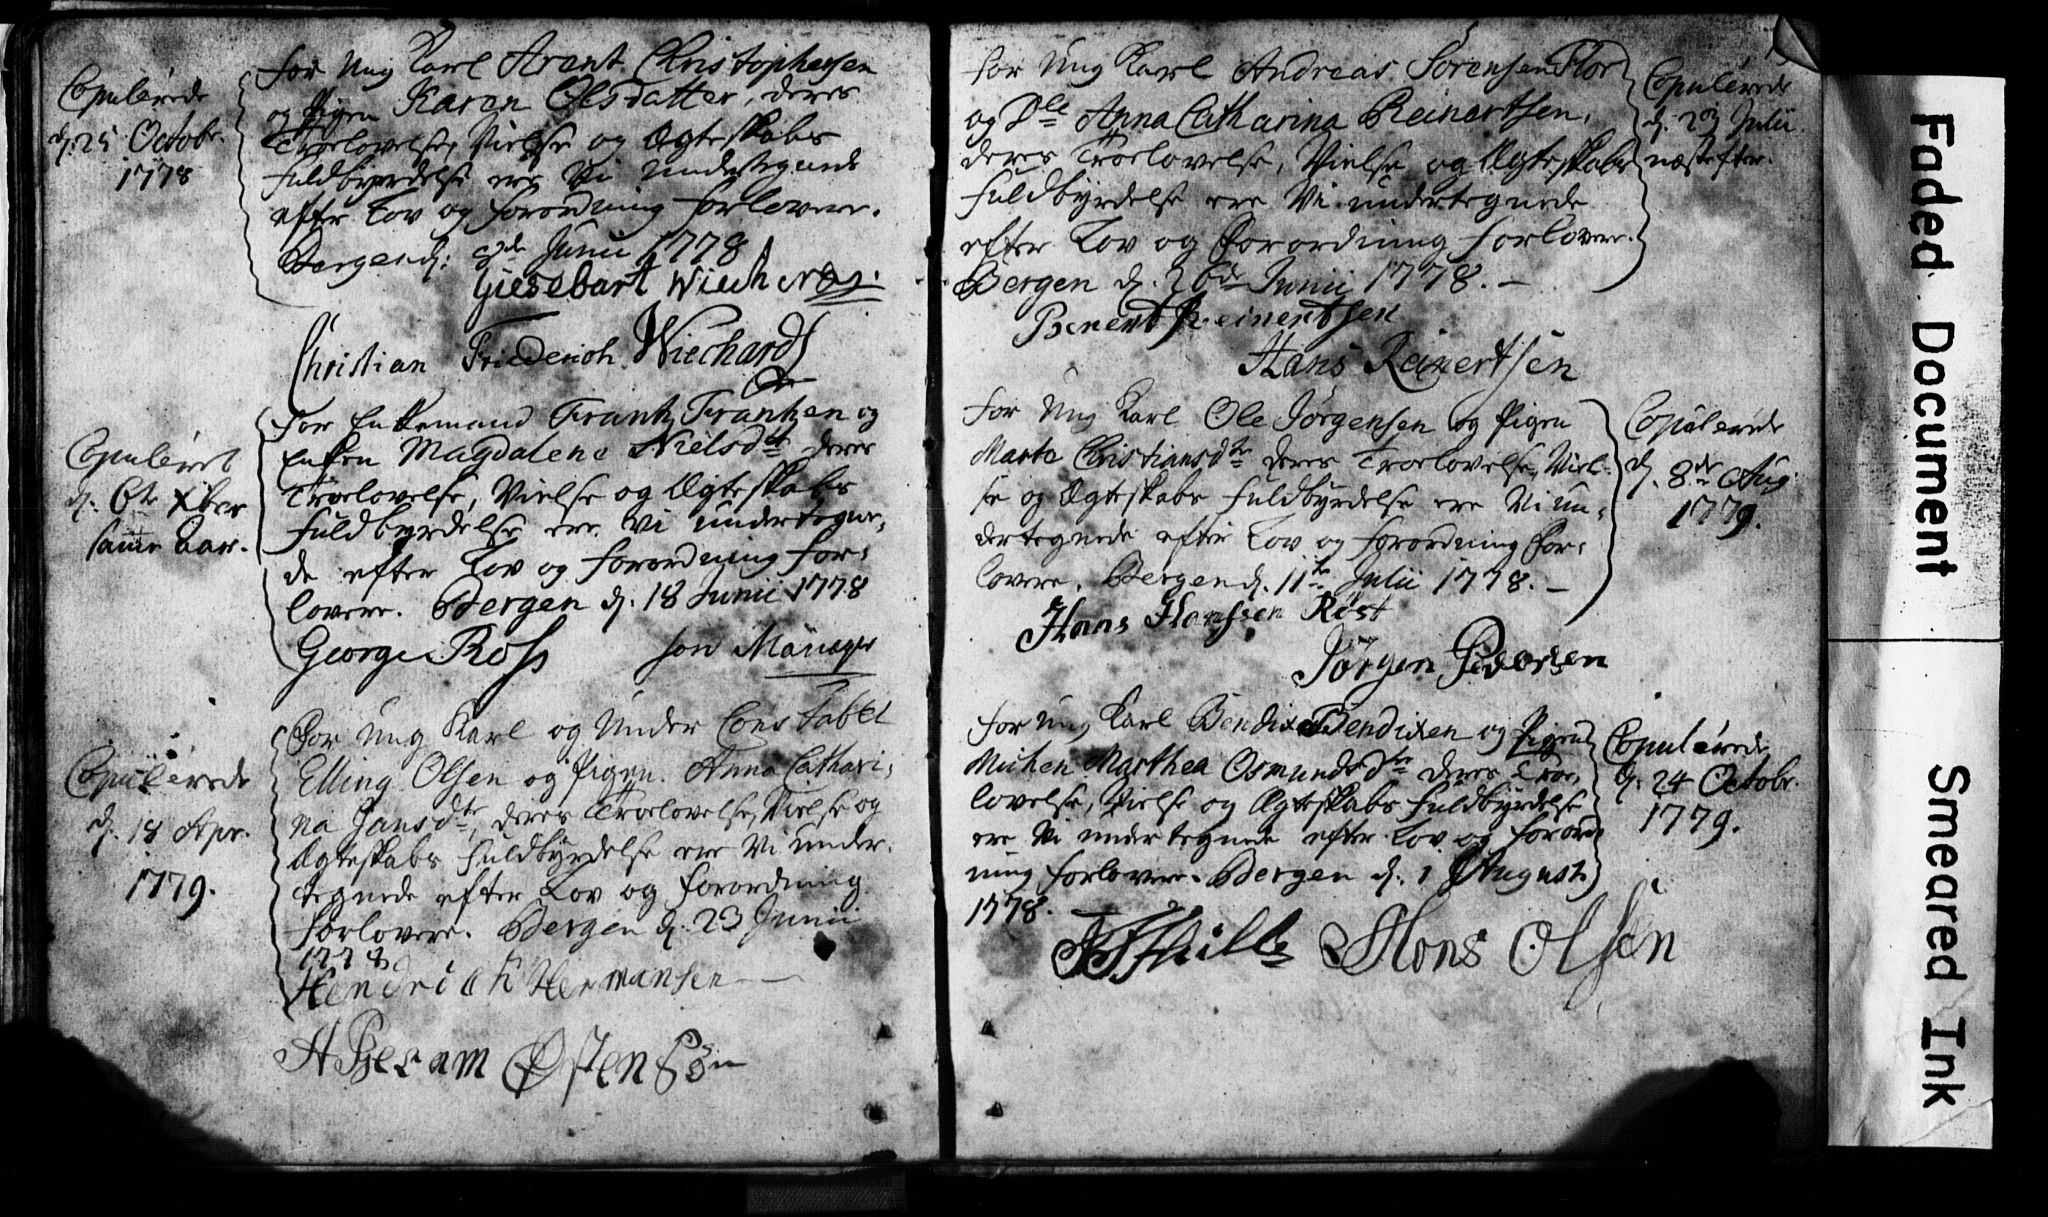 Copulerede
d. 25 Octobr.
1778
for Ung Karl Arent Christophersen
og Pigen Karen Olsdatter, deres
Troelovelse, Vielse og Ægteskabs
fuldbyrdelse ere Vi undertegnede
efter Lov og Forordning forlovere.
Bergen d: 9de Junii 1778
Giesebart Wiecherds.
Christian Friederich Wiechards
Copuleret
d. 6te Xber
samme Aar.
For Enkemand Frantz Frantzen og
Enken Magdalene Nielsdtr deres
Troelovelse, Vielse og Ægteskabs
Fuldbyrdelse ere Vi undertegne-
de efter Lov og Forordning For-
lovere. Bergen d. 18 Junii 1778
George Ross
Copulerede
d. 18 Sepr.
1779.
For Ung Karl og Under Constabel
Elling Olsen og Pigen Anna Cathari-
na Jansdtr, deres Troelovelse, Vielse og
Ægteskabs Fuldbyrdelse ere Vi under-
tegnede efter Lov og Forordning
Forlovere. Bergen d. 23 Junii
1778
Hendrich Hermansen
Abraham Østensøn
for Ung Karl Andreas Sørensen Flor
og Dlle Anna Catharina Reinertsen,
deres Troelovelse, Vielse og Ægteskabs
Fuldbyrdelse ere Vi undertegnede
efter Lov og Forordning Forlovere.
Bergen d. 26de Junii 1778.
Reinert Reinertsen
Hans Reinertsen
Copulerede
d. 23 Julii
næstefter.
for Ung Karl Ole Jørgensen og Pigen
Marte Christiansdtr deres Troelovelse, Viel-
se og Ægteskabs Fuldbyrdelse ere Vi un-
dertegnede efter Lov og Forordning For-
lovere. Bergen d. 11te Julii 1778.
Hans Hanssen Røst
Jørgen Pedersen
Copulerede
d. 8de Aug.
1779.
for Ung Karl Bendix Bendixen og Pigen
Michen Marthea Osmundsdtr deres Troe-
lovelse, Vielse og Ægteskabs Fuldbyrdelse
ere Vi undertegnede efter Lov og Forord-
ning Forlovere. Bergen d. 1 August
1778.
Hans Olsen
Copulerede
d. 24 Octobr.
1779.
Faded Document
Smeared Ink